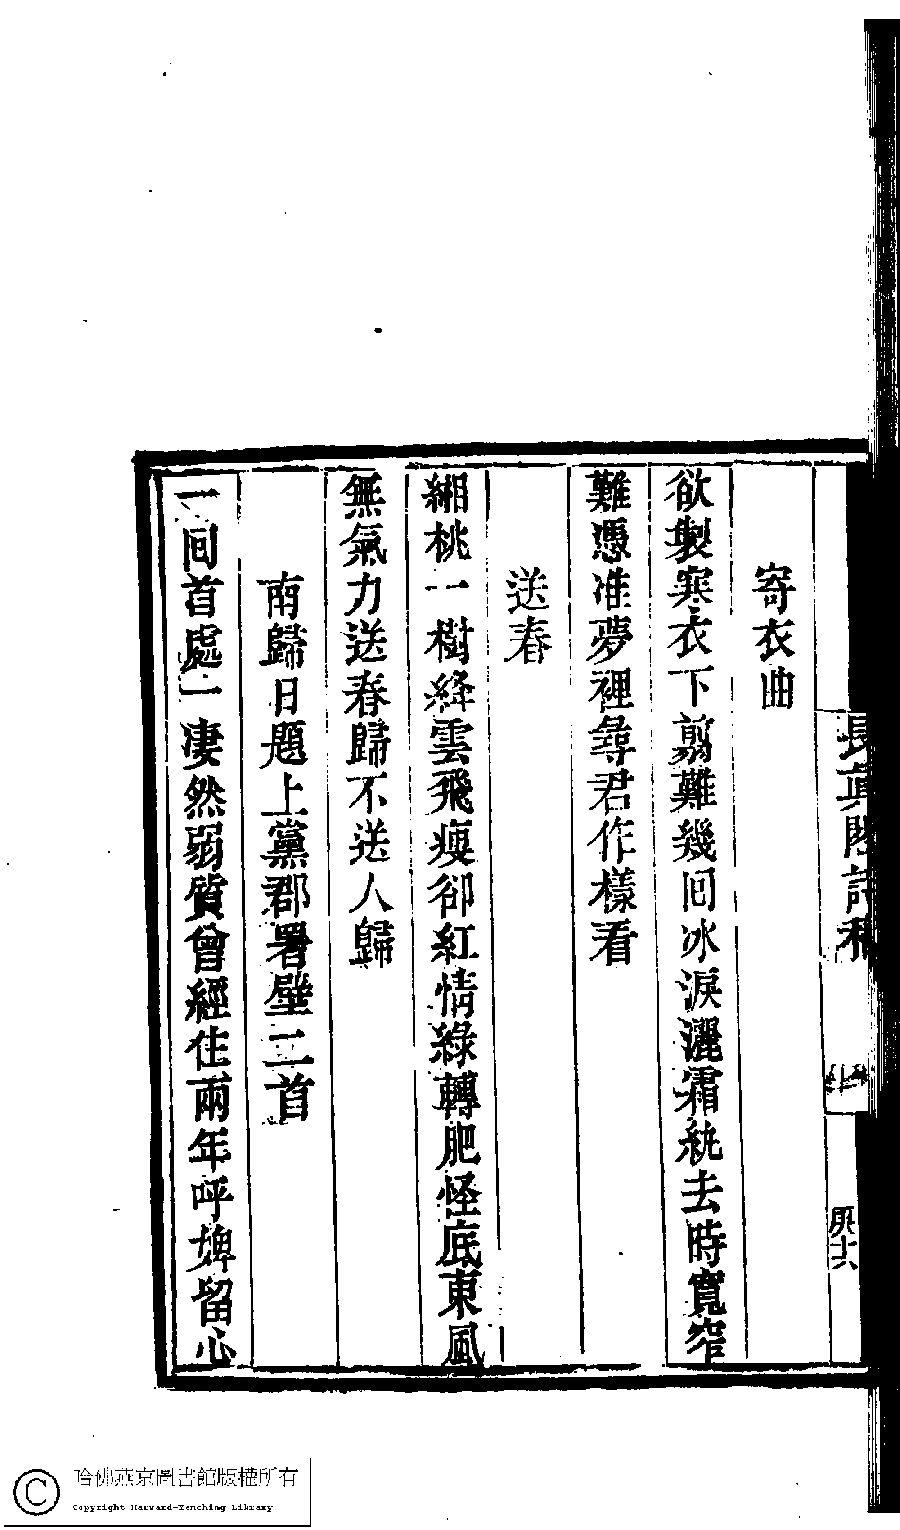 寄衣曲
欲製寒衣下翦難幾回冰淚灑霜紈去時寬窄
難憑准夢裡尋君作樣看
送春
緗桃一樹絳雲飛瘦卻紅情綠轉肥怪底東風
無氣力送春歸不送人歸
南歸日題上黨郡署壁二首
一回首處一凄然弱質曾經住兩年呼婢留心
長真閣詩稿
哈佛燕京圖書館版權所有
Copyright Harvard-Yenching Library